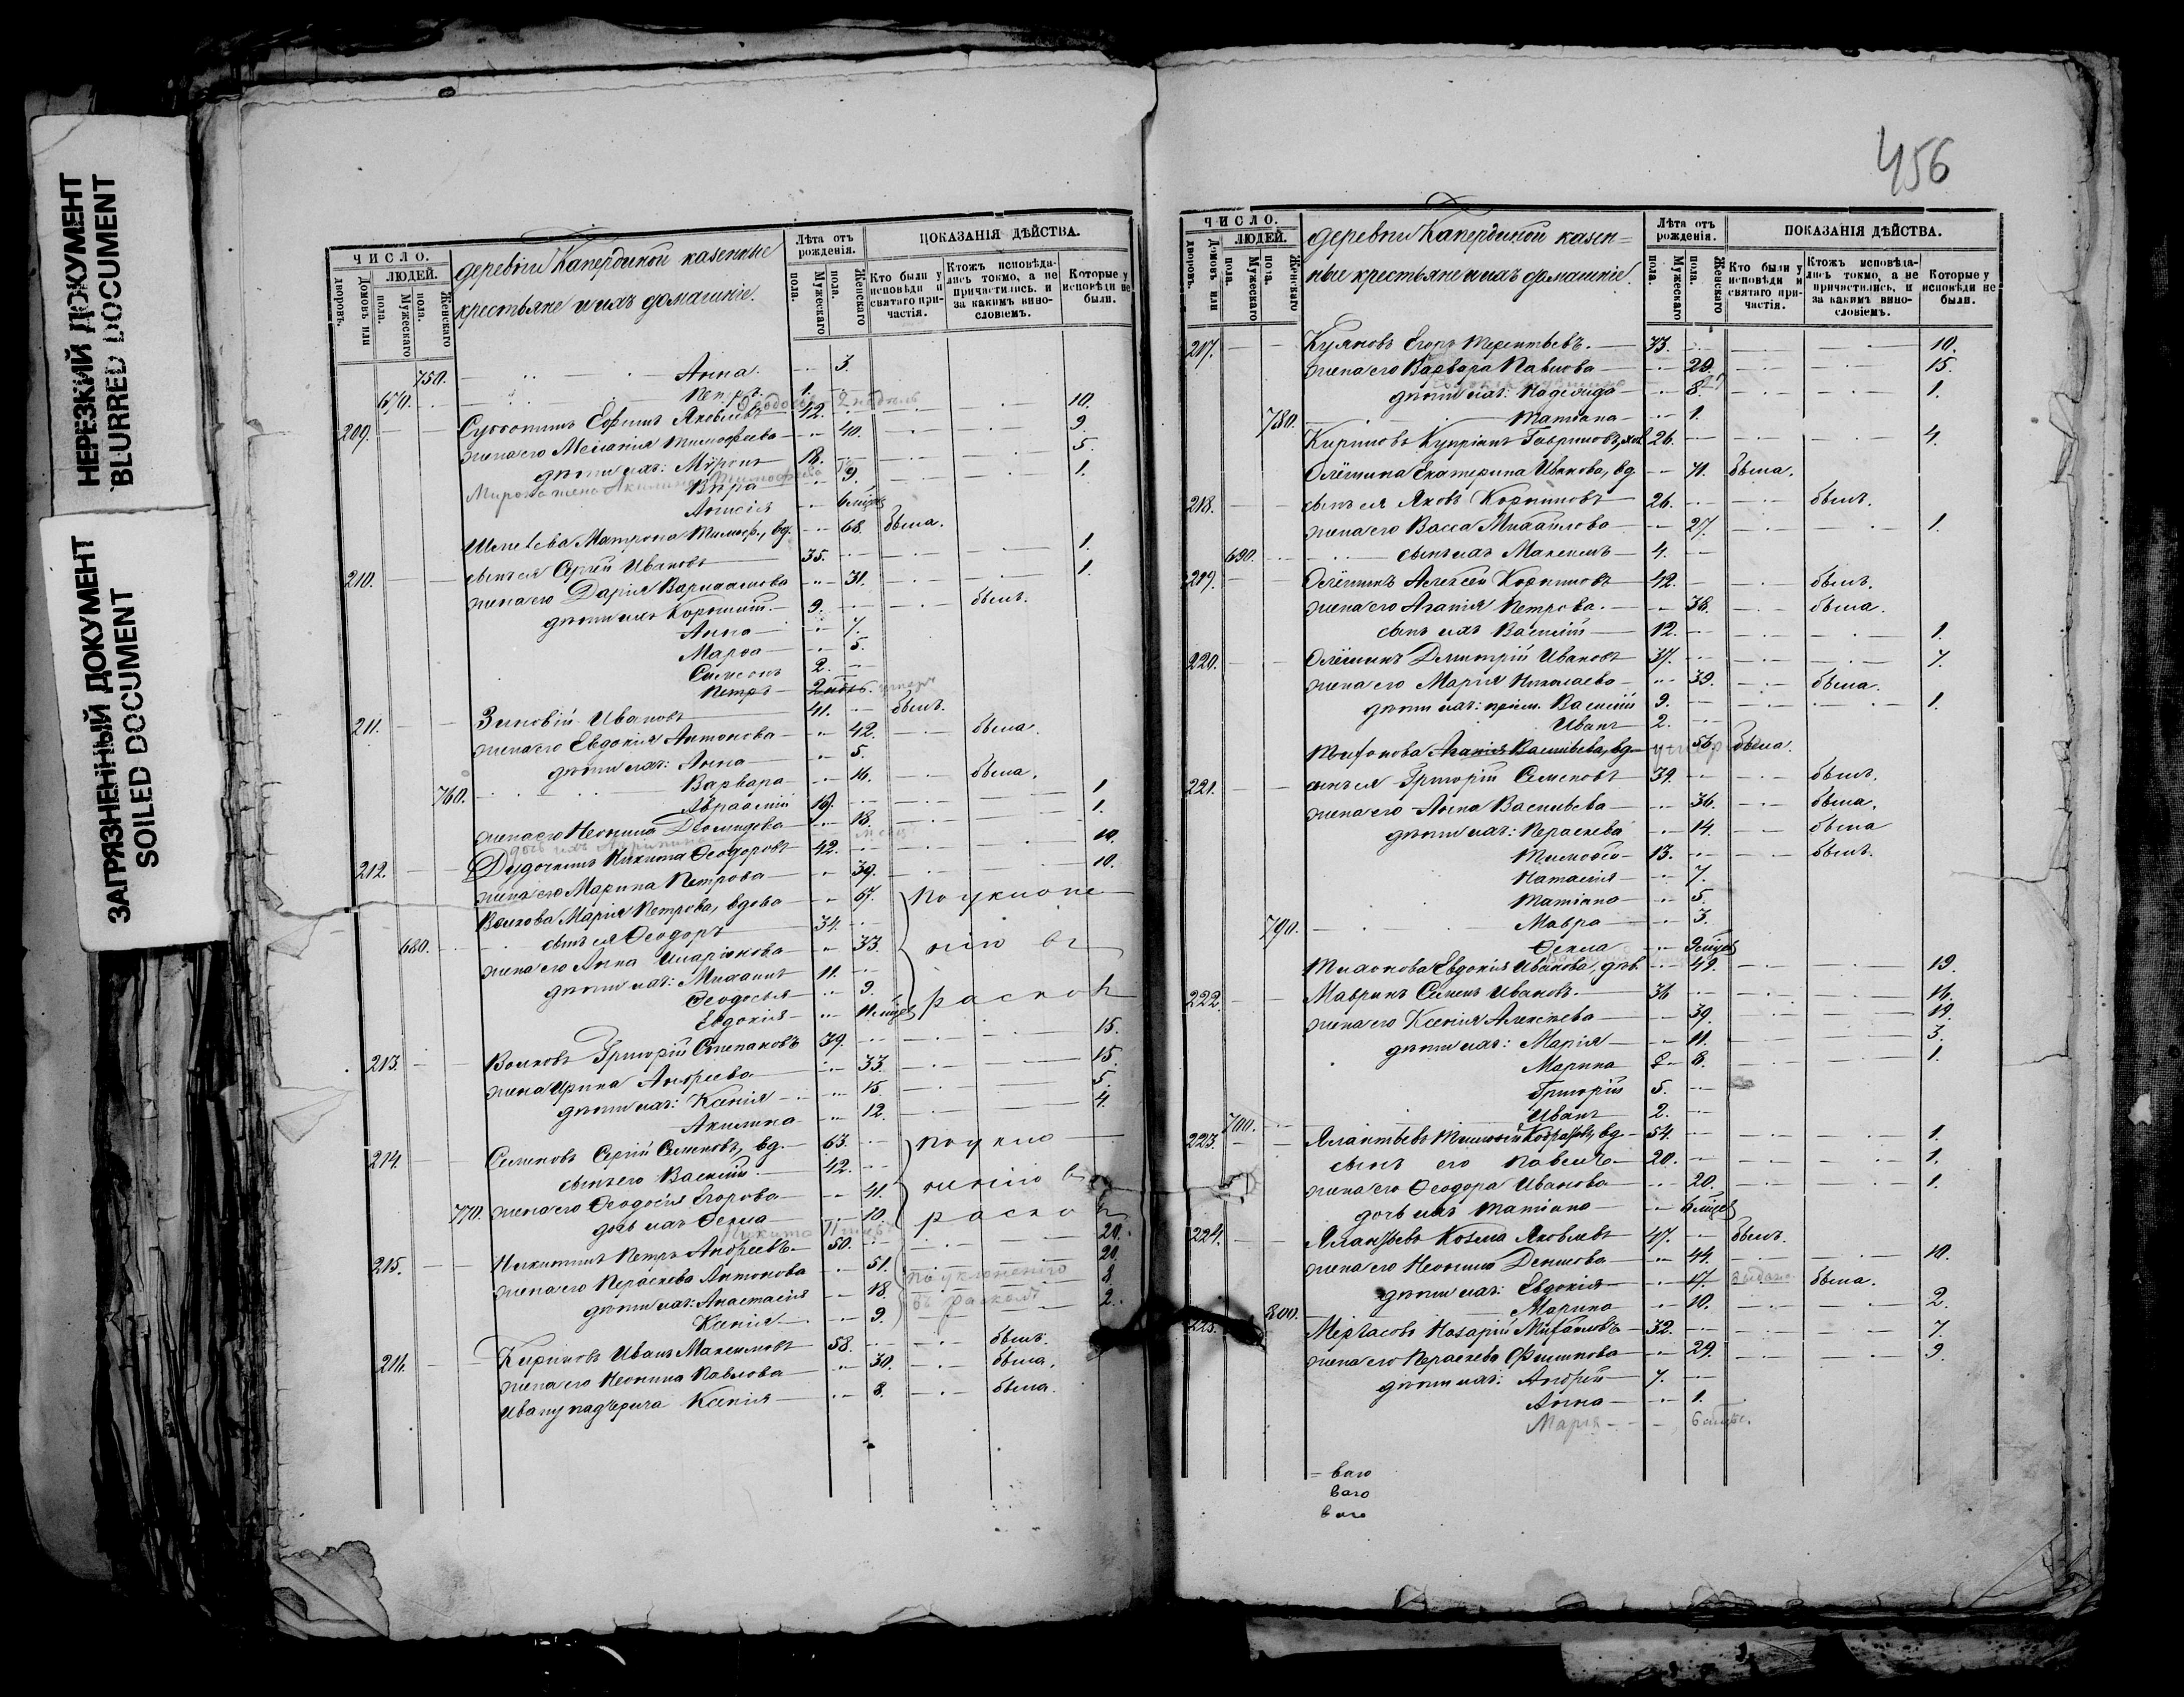 НЕРЕЗКИЙ ДОКУМЕНТ
BLURRED DOCUMENT
ЗАГРЯЗНЕННЫЙ ДОКУМЕНТ
SOILED DOCUMENT
ЧИСЛО.
ЛЮДЕЙ.
Домовъ или дворовъ.
Мужескаго пола.
Женскаго пола.
деревни Капердиной казенные
крестьяне и ихъ домашніе.
Лѣта отъ рожденія.
Мужескаго пола.
Женскаго пола.
ПОКАЗАНІЯ ДѢЙСТВА.
Кто были у исповѣди и святаго причастія.
Ктожъ исповѣдались токмо, а не причастились, и за какимъ винословіемъ.
Которые у исповѣди не были.
750. Анна 3.
670. Петръ 1.
209. Ефимъ Яковлевъ 42. 10.
жена его Меланія Тимофеева 40. 9.
дѣти ихъ: Мѵронъ 18. 5.
Мирона жена Акилина Тимофеева
Вѣра 9. 1.
Анисія 6 мѣс.
Матрона Тимоф., вд. 68. была.
210. сынъ ея Сергій Ивановъ 35. 1.
жена его Дарія Варлаамова 31. 1.
дѣти ихъ Корнилій 9. былъ.
Анна 7.
Марѳа 5.
Симеонъ 2.
Петръ
211. Зиновій Ивановъ 41. былъ.
жена его Евдокія Антонова 42. была.
дѣти ихъ: Анна 5.
760. Варвара 16. была.
Авраамій 19. 1.
жена его Неонила Діомидова 18. 1.
212. Дудочкинъ Никита Ѳеодоровъ 42. 10.
жена его Марина Петрова 39. 10.
Волкова Марія Петрова, вдова 67. по уклоне
680. сынъ ея Ѳеодоръ 34.
жена его Анна Иларіонова 33. нію въ
дѣти ихъ: Михаилъ 11.
Ѳеодосья 9. раскол
Евдокія 11 мѣс.
213. Волковъ Григорій Степановъ 39. 15.
жена Ирина Андреева 33. 15.
дѣти ихъ: Ксенія 15. 5.
Акилина 12. 4.
214. Семеновъ Сергій Семеновъ, вд. 63. по укло
сынъ его Василій 42.
770. жена его Ѳеодосія Егорова 41. ненію въ
дочь ихъ Ѳекла 10. раскол
Никита
215. Никитинъ Петръ Андреевъ 50. 20.
жена его Параскева Антонова 51. 20.
по уклоненію
дѣти ихъ: Анастасія 18. 8.
въ расколъ
Ксенія 9. 2.
216. Кириловъ Иванъ Максимовъ 58. былъ.
жена его Неонила Павлова 30. была.
Ивану падчерица Ксенія 8. была.
456
ЧИСЛО.
ЛЮДЕЙ.
Домовъ или дворовъ.
Мужескаго пола.
Женскаго пола.
деревни Капердиной казен=
ные крестьяне и ихъ домашніе.
Лѣта отъ рожденія.
Мужескаго пола.
Женскаго пола.
ПОКАЗАНІЯ ДѢЙСТВА.
Кто были у исповѣди и святаго причастія.
Ктожъ исповѣдались токмо, а не причастились, и за какимъ винословіемъ.
Которые у исповѣди не были.
217. Егоръ Терентьевъ 33. 10.
жена его Варвара Павлова 29. 15.
дѣти ихъ: Надежда 8. 1.
780. Татіана 1.
Кириловъ Купріанъ Гавриловъ, хол. 26. 4.
Олёшина Екатерина Иванова, вд. 71. была.
218. сынъ ея Яковъ Корниловъ 26. былъ.
жена его Васса Михаилова 27. 1.
690. сынъ ихъ Максимъ 4.
219. Олёшинъ Алексей Корниловъ 42. былъ.
жена его Агапія Петрова. 38. была.
сынъ ихъ Василій 12. 1.
220. Олёшинъ Димитрій Ивановъ 37. 7.
жена его Марія Николаева 39. была.
дѣти ихъ: пріем. Василій 9. 1.
Иванъ 2.
Агапія Васильева, вд. 56. была.
221. сынъ ея Григорій Семеновъ 39. былъ.
жена его Анна Васильева 36. была.
дѣти ихъ: Параскева 14. была
Тимофей 13. былъ.
Наталія 7.
Татіана 5.
790. Мавра 3.
Ѳекла 9 мѣс.
Тихонова Евдокія Иванова, дѣв. 49. 19.
222. Мавринъ Семенъ Ивановъ. 36 16.
жена его Ксенія Алексѣева 39. 19.
дѣти ихъ: Марія 11. 3.
Марина 8. 1.
Григорій 5.
700. Иванъ 2.
223. вд. 54. 1.
сынъ его Павелъ 20. 1.
жена его Ѳеодора Иванова 20. 1.
дочь ихъ Татіана
224. Козма Яковлевъ 47. былъ.
жена его Неонила Денисова 44. 10.
дѣти ихъ: Евдокія 17. выдана была.
800. Марина 10. 2.
225. Назарій 32. 7.
жена его Параскева Филипова 29. 9.
дѣти ихъ: Андрей 7.
Анна 1.
Марія
= ваго
ваго
ваго